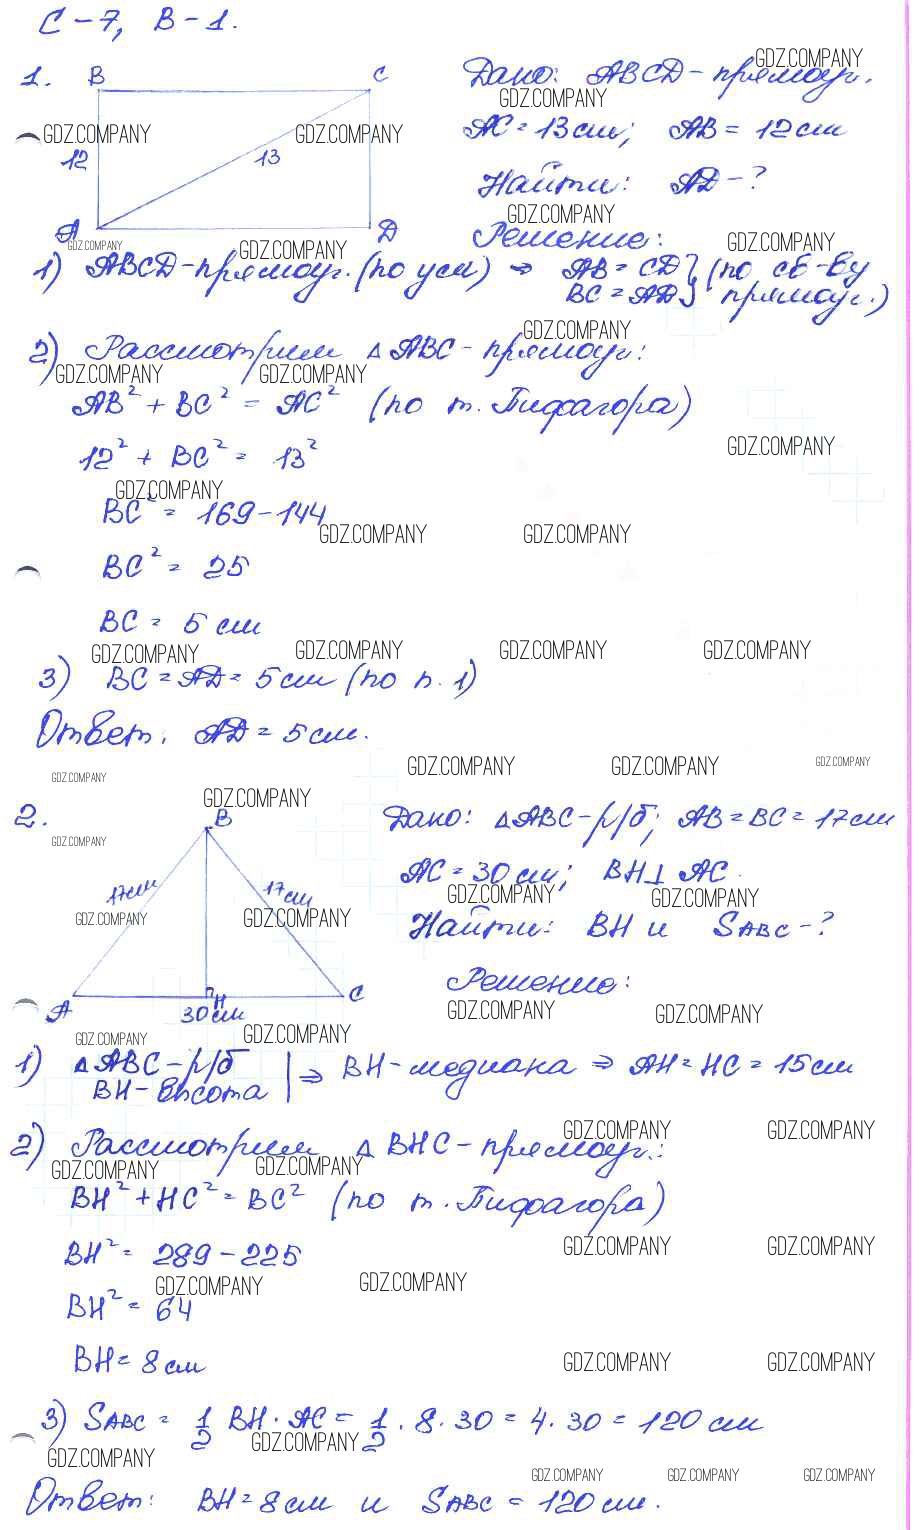 С-7, В-1.
1. B C
12 13
A D
Дано: ABCD - прямоуг.
AC = 13 см; AB = 12 см
Найти: AD - ?
Решение:
1) ABCD - прямоуг. (по усл) ⇒ AB = CD } (по св-ву
BC = AD } прямоуг.)
2) Рассмотрим △ABC - прямоуг:
AB² + BC² = AC² (по т. Пифагора)
12² + BC² = 13²
BC² = 169 - 144
BC² = 25
BC = 5 см
3) BC = AD = 5 см (по п. 1)
Ответ: AD = 5 см.
2. B
17 см 17 см
A H C
30 см
Дано: △ABC - р/б; AB = BC = 17 см
AC = 30 см; BH ⊥ AC.
Найти: BH и SABC - ?
Решение:
1) △ABC - р/б | ⇒ BH - медиана ⇒ AH = HC = 15 см
BH - высота
2) Рассмотрим △BHC - прямоуг.:
BH² + HC² = BC² (по т. Пифагора)
BH² = 289 - 225
BH² = 64
BH = 8 см
3) SABC = 1/2 BH · AC = 1/2 · 8 · 30 = 4 · 30 = 120 см
Ответ: BH = 8 см и SABC = 120 см.
GDZ.COMPANY